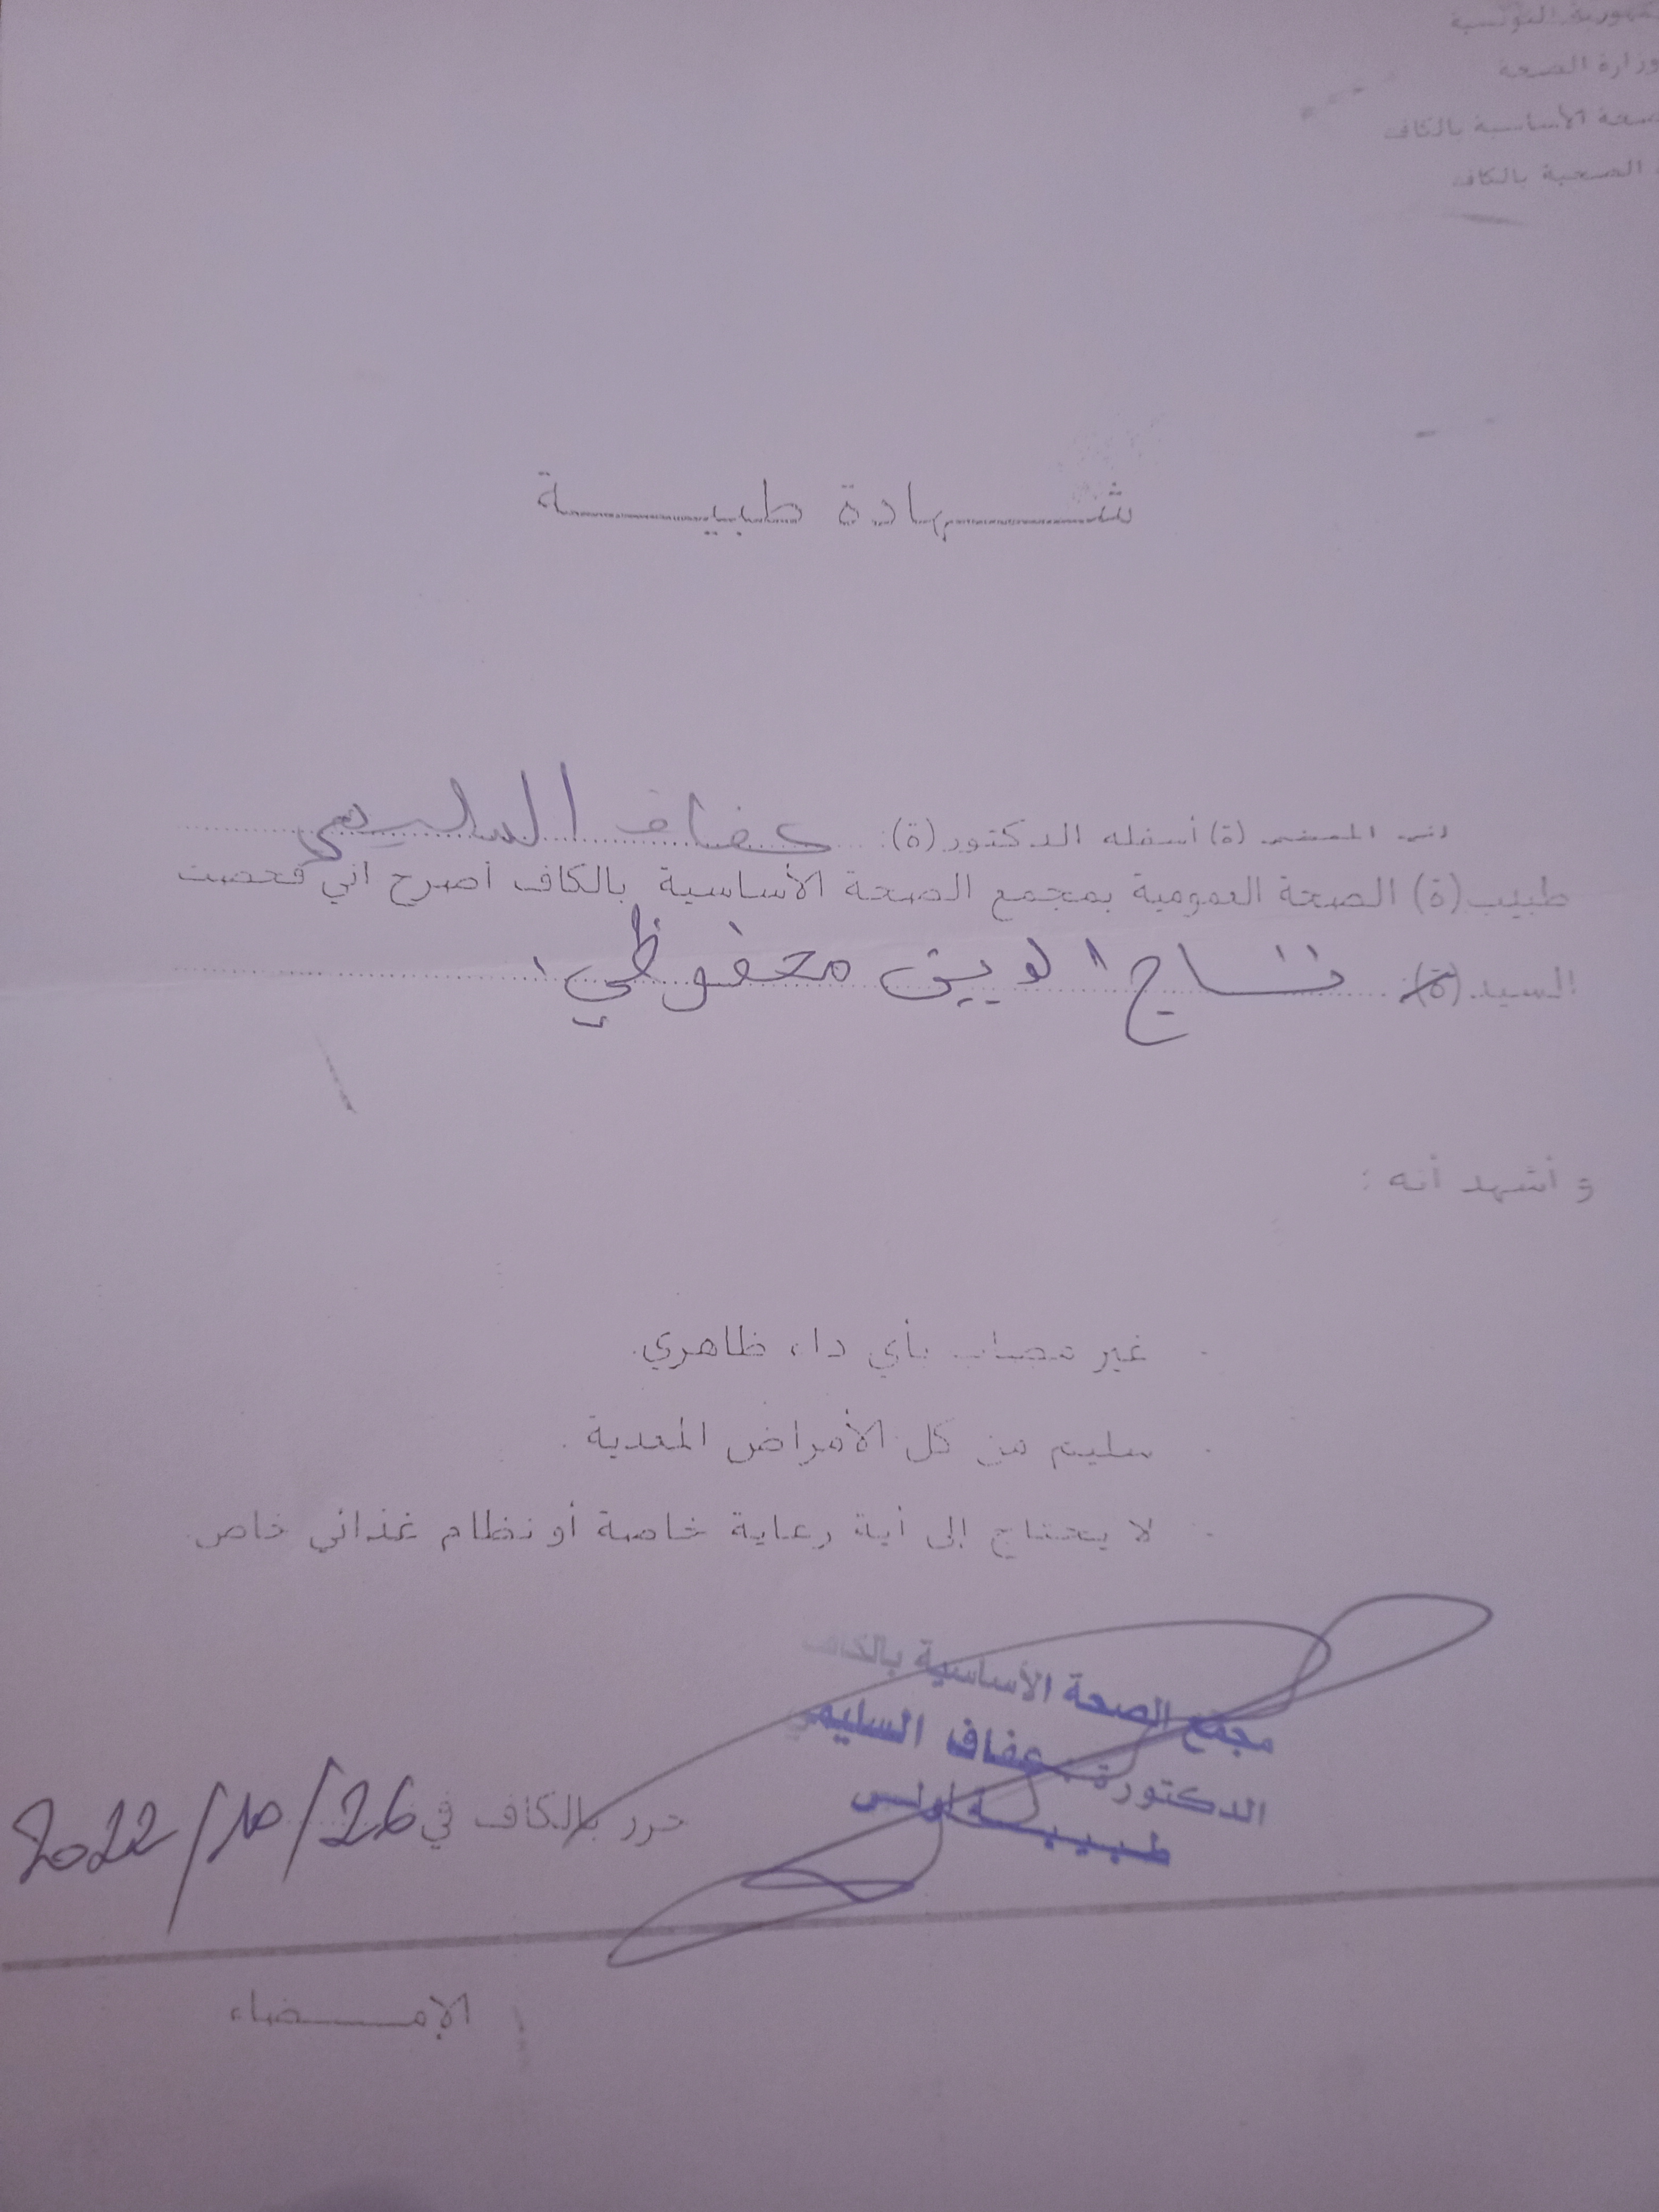 الجمهورية التونسية
وزارة الصحة
الصحة الأساسية بالكاف
الصحية بالكاف
شهادة طبية
اني الممضي (ة) أسفله الدكتور(ة): عفاف السليمي
طبيب(ة) الصحة العمومية بمجمع الصحة الأساسية بالكاف أصرح اني فحصت
السيد(ة) تاج الدين محفوظي
و أشهد أنه :
- غير مصاب بأي داء ظاهري.
- سليم من كل الأمراض المعدية.
- لا يحتاج إلى أية رعاية خاصة أو نظام غذائي خاص.
مجمع الصحة الأساسية بالكاف
الدكتورة : عفاف السليمي
طبيبة أولى
حرر بالكاف في 26/10/2022
الإمضاء